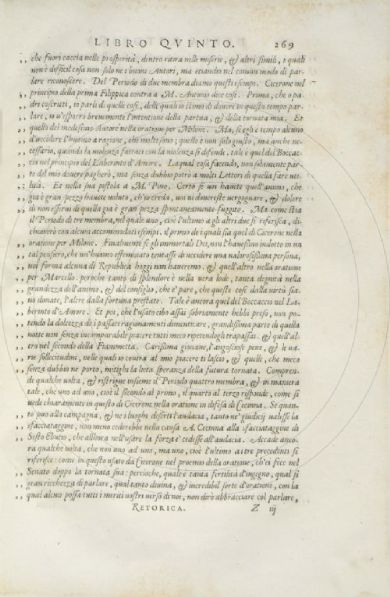 LIBRO QVINTO. 269
,, che fuori caccia nelle prosperità, dentro tratta nelle miserie, & altri simili, i quali
non è difficil cosa non solo ne i buoni Autori, ma etiandio nel comun modo di par-
lare riconoscere. Del Periodo di due membra diamo questi esempi. Cicerone nel
principio della prima Filippica contra a M. Antonio dice così. Prima, che o pa-
dri coscritti, io parli di quelle cose, delle quali io stimo di dovere in questo tempo par-
lare, vi esporrò brevemente l'intentione della partita, & della tornata mia. Et
quello del medesimo Autore nella oratione per Milone. Ma, se gliè tempo alcuno
d'uccidere l'huomo a ragione, che molti sono; questo è non solo giusto, ma anche ne-
cessario, quando la violenza fattaci con la violenza si difende. tale è quel del Boccac-
cio nel principio del Laberinto d'Amore. Laqual cosa facendo, non solamente par-
te del mio dovere pagherò, ma senza dubbio potrò a molti Lettori di quella fare uti-
lità. Et nella sua pistola a M. Pino.
gia è gran pezzo havete udito, ch'io
di non essersi di quella già è gran pezzo spontaneamente fuggito. Ma come stia
il Periodo di tre membra, nel quale uno, cioè l'ultimo a gli altri due si riferisca, di-
chiarerò con alcuni accommodati esempi. il primo de i quali sia quel di Cicerone nella
oratione per Milone. Finalmente se gli immortali Dei, non l'havessino indotto in un
tal pensiero, che un'huomo effeminato tentasse di uccidere una valorosissima persona,
noi forma alcuna di Republica hoggi non haveremo. & quell'altro nella oratione
per Marcello. percioche tanto di splendore è nella vera lode, tanta dignità nella
grandezza dell'animo, & del consiglio, che e' pare, che queste cose dalla virtù sia-
no donate, l'altre dalla fortuna prestate. Tale è ancora quel del Boccaccio nel La-
berinto d'Amore. Et poi, che l'usato cibo assai sobriamente hebbi preso, non po-
tendo la dolcezza de i passati ragionamenti dimenticare, grandissima parte di quella
notte non senza incomparabile piacere tutti meco ripetendogli trapassai. & quell'al-
tro nel secondo della Fiammetta. Carissima giovane, l'angosciose pene, & le va-
rie sollecitudini, nelle quali io contra al mio piacere ti lascio, & quelle, che meco
senza dubbio ne porto, mitighi la lieta speranza della futura tornata. Compren-
de qualche volta, & ristrigne insieme il Periodo quattro membra, & in maniera
tale, che uno ad uno, cioè il secondo al primo, il quarto al terzo risponde, come si
vede chiaramente in questo di Cicerone nella oratione in difesa di Cecinna. Se quan-
to può alla campagna, & ne i luoghi deserti l'audacia, tanto ne' giudicij valesse la
sfacciataggine, non meno cederebbe nella causa A. Cecinna alla sfacciataggine di
Sesto Ebutio, che allhora nell'usare la forza e' cedesse all'audacia. Accade anco-
ra qualche volta, che non uno ad uno, ma uno, cioè l'ultimo a i tre precedenti si
riferisce: come in questo usato da Cicerone nel proemio della oratione, ch'ei fece nel
Senato doppo la tornata sua: percioche, quale è tanta fertilità d'ingegno, qual sì
gran ricchezza di parlare, qual tanto divina, & incredibil sorte d'oratione, con la
qual alcuno possa tutti i meriti vostri verso di noi, non dirò abbracciare col parlare,
RETORICA. Z iij